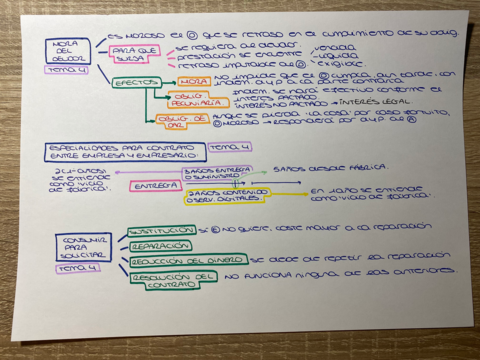 MORA DEL DEUDOR
TEMA 4
ES MOROSO EL Ⓓ QUE SE RETRASO EN EL CUMPLIMIENTO DE SU OBLIG.
PARA QUE SURJA
se requiera al deudor.
prestación se encuentre
vencida
líquida
exigible
retraso imputable al Ⓓ
EFECTOS
MORA
NO IMPIDE QUE EL Ⓓ CUMPLA, AUN TARDE, CON
INDEM. d y p A LA PARTE CONTRARIA
OBLIG. PECUNIARIA
INDEM. SE HARÁ EFECTIVO CONFORME EL
INTERÉS PACTADO
INTERÉS NO PACTADO → INTERÉS LEGAL
OBLIG. DE DAR
AUNQUE SE PIERDA LA COSA POR CASO FORTUITO,
Ⓓ MOROSO → RESPONDERÁ POR d y P AL Ⓐ
ESPECIALIDADES PARA CONTRATO
ENTRE EMPRESA Y EMPRESARIO:
TEMA 4
SE ENTIENDE
COMO VICIO
DE FÁBRICA.
3 AÑOS ENTREGA
O SUMINISTRO
5 AÑOS DESDE FÁBRICA.
ENTREGA
2 AÑOS CONTENIDO
O SERV. DIGITALES.
EN 1 AÑO SE ENTIENDE
COMO VICIO DE FÁBRICA.
CONSUMIR
PARA
SOLICITAR
TEMA 4
SUSTITUCIÓN
SI Ⓔ NO QUIERE. COSTE MAYOR A LA REPARACIÓN
REPARACIÓN
REDUCCIÓN DEL DINERO
SE DEBE DE REPETIR LA REPARACIÓN
RESOLUCIÓN DEL
CONTRATO
NO FUNCIONA NINGUNA DE LAS ANTERIORES.